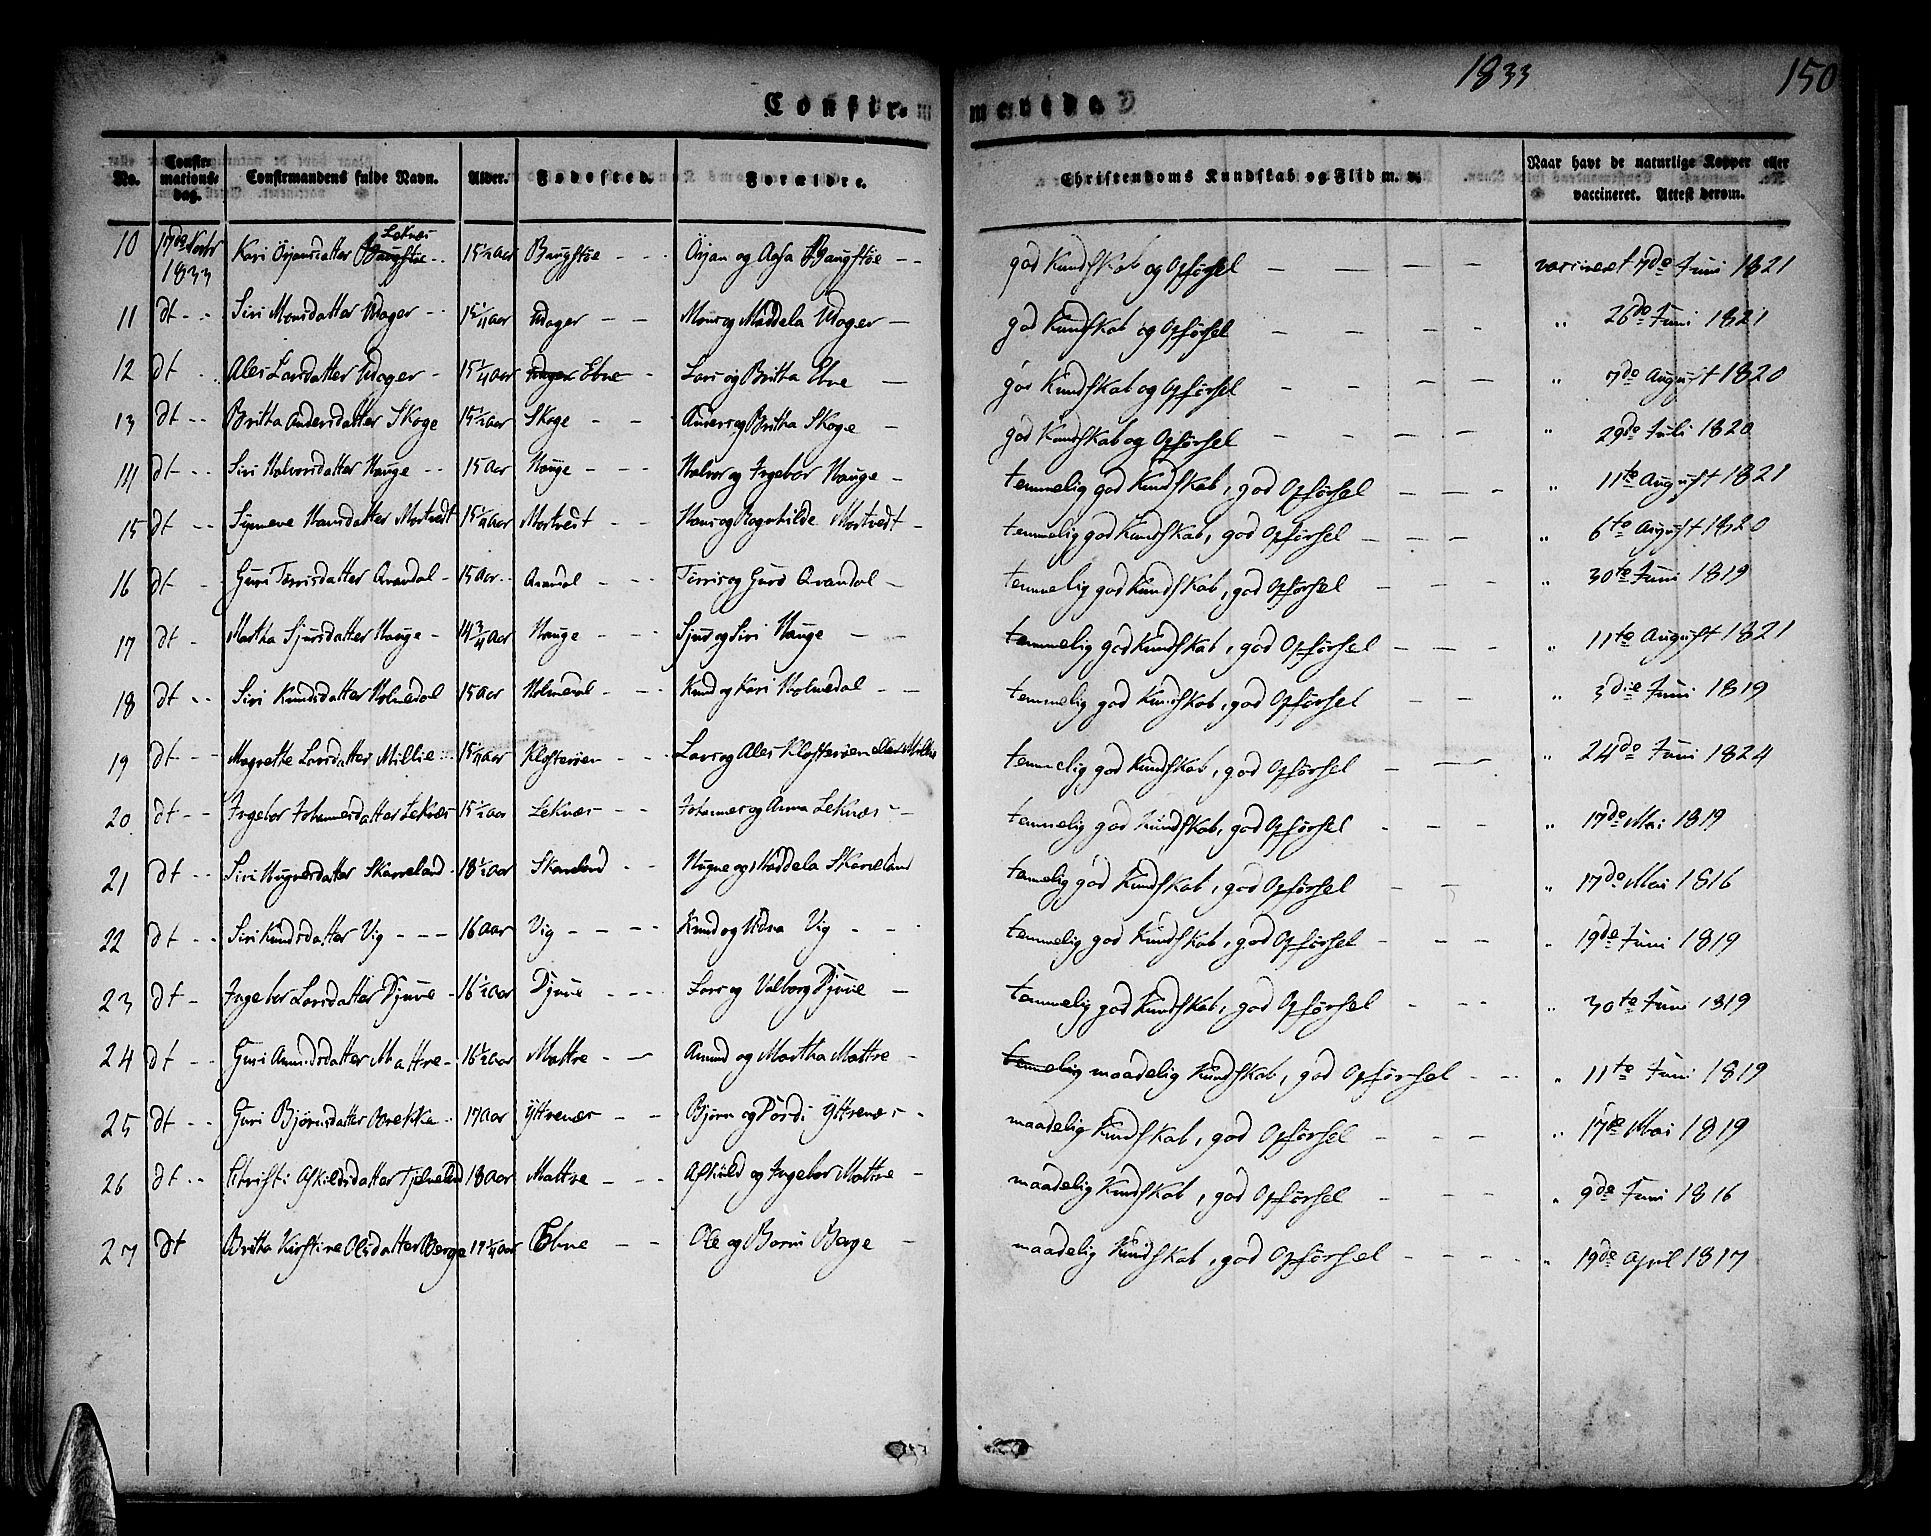 1833 150
Confir- merede
No. Confirmations-dag. Confirmandens fulde Navn. Alder. Fødested. Forældre. Christendoms Kundskab og Flid m. v. Naar havt de naturlige Kopper eller vaccineret. Attest derom.
10 17de 1833 Kari Örjansdatter Leknæs 15½ Aar Baugstöe Örjan og Aasa Baugstöe god Kundskab og Opførsel vacineret 7de Juni 1821
11 dt Siri Monsdatter Udager 15¼ Aar Udager Mons og Maddela Udager god Kundskab og Opførsel " 26de Juni 1821
12 dt Ales Larsdatter Udager 15¼ Aar Ebne Lars og Britha Ebne god Kundskab og Opførsel " 7de August 1820
13 dt Britha Andersdatter Skoge 15½ Aar Skoge Anders og Britha Skoge god Kundskab og Opførsel " 29de Juli 1820
14 dt Siri Halvorsdatter Hauge 15 Aar Hauge Halvor og Ingebor Hauge temmelig god Kundskab, god Opførsel " 11te August 1821
15 dt Synneve Hansdatter Mortvedt 15¼ Aar Mortvedt Hans og Ragnhilde Mortvedt temmelig god Kundskab, god Opførsel " 6te August 1820
16 dt Guri Torrisdatter Qvandal 15 Aar Qvandal Torris og Guro Qvandal temmelig god Kundskab, god Opførsel " 30te Juni 1819
17 dt Martha Sjursdatter Hauge 14¾ Aar Hauge Sjur og Siri Hauge temmelig god Kundskab, god Opførsel " 11te August 1821
18 dt Siri Knudsdatter Holmedal 15 Aar Holmedal Knud og Kari Holmedal temmelig god Kundskab, god Opførsel " 3die Juni 1819
19 dt Magrethe Larsdatter Millie 15¼ Aar Klosterøen Lars og Ales Klosterøen temmelig god Kundskab, god Opførsel " 24de Juni 1824
20 dt Ingebor Johannesdatter Leknæs 15½ Aar Leknæs Johannes og Anna Leknæs temmelig god Kundskab, god Opførsel " 17de Mai 1819
21 dt Siri Hagnesdatter Skaneland 18½ Aar Skaneland Hagne og Maddela Skaneland temmelig god Kundskab, god Opførsel " 17de Mai 1816
22 dt Siri Knudsdatter Vig 16 Aar Vig Knud og Vig temmelig god Kundskab, god Opførsel " 19de Juni 1819
23 dt Ingebor Larsdatter Djuve 16½ Aar Djuve Lars og Valborg Djuve temmelig god Kundskab, god Opførsel " 30te Juni 1819
24 dt Guri Amundsdatter Mattre 16½ Aar Mattre Amund og Martha Mattre temmelig maadelig Kundskab, god Opførsel " 11te Juni 1819
25 dt Guri Björnsdatter Brekke 17 Aar Yttrenæs Björn og Pördi Yttrenæs maadelig Kundskab, god Opførsel " 17de Mai 1819
26 dt Christi Askildsdatter 18 Aar Mattre Askild og Ingebor Mattre maadelig Kundskab, god Opførsel " 9de Juni 1816
27 dt Britha Kirstine Olsdatter Berge 17¼ Aar Ebne Ole og Berge maadelig Kundskab, god Opførsel " 19de April 1817